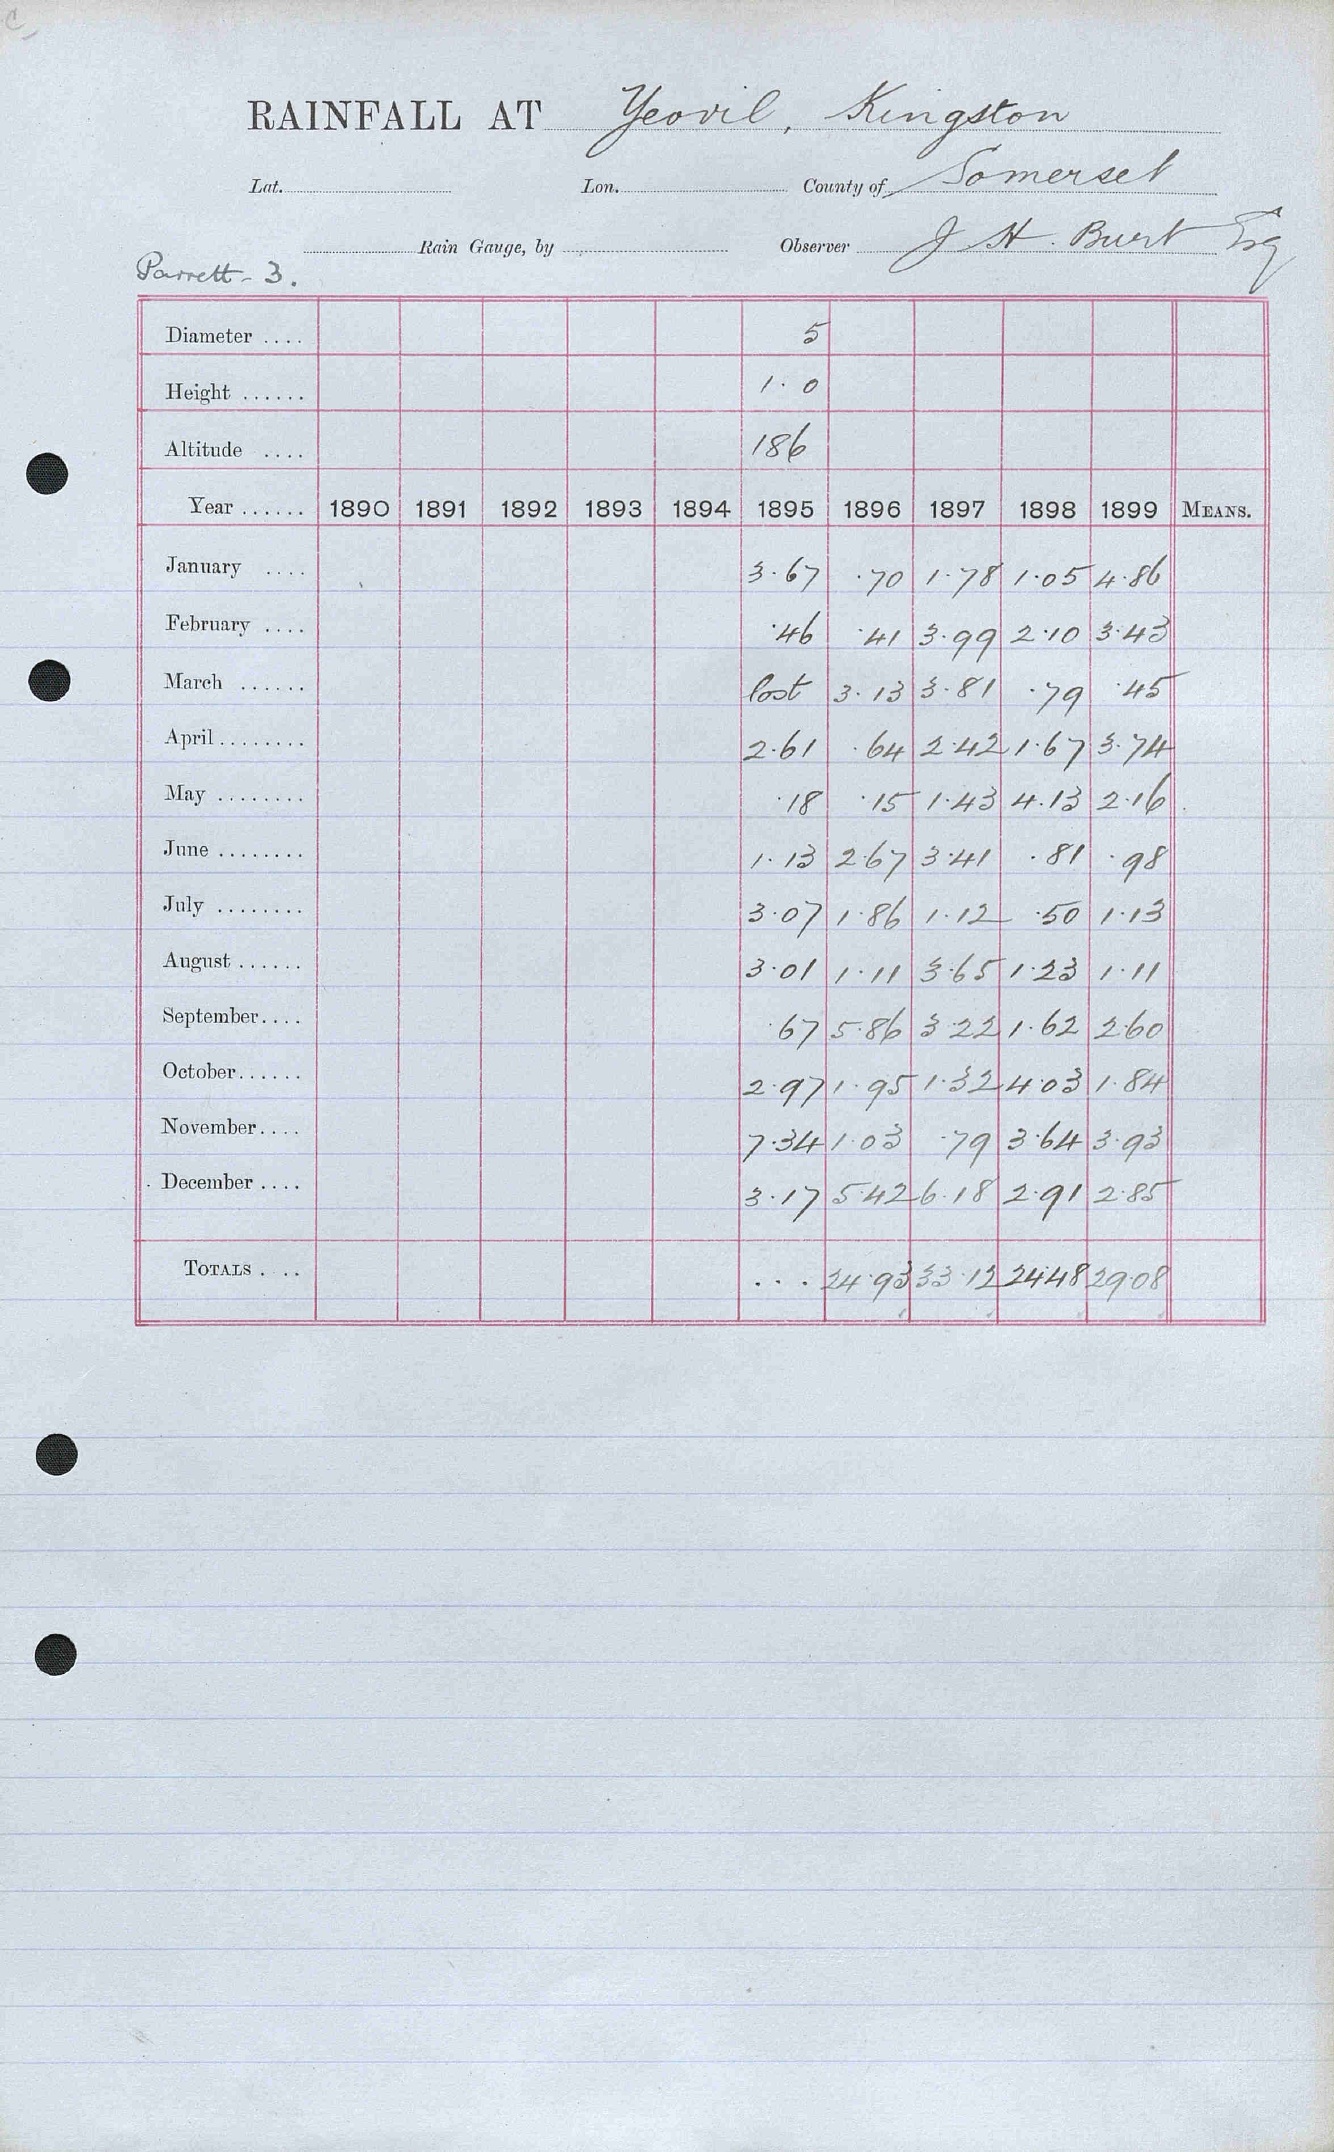 C
RAINFALL AT Yeovil, Kingston
Lat. Lon. County of Somerset
Rain Gauge, by Observer J H. Burt Esq
Parrett - 3.
Diameter .... 5
Height ...... 1.0
Altitude .... 186
Year ...... 1890 1891 1892 1893 1894 1895 1896 1897 1898 1899 MEANS.
January .... 3.67 .70 1.78 1.05 4.86
February .... .46 .41 3.99 2.10 3.43
March ...... lost 3.13 3.81 .79 .45
April ........ 2.61 .64 2.42 1.67 3.74
May ........ .18 .15 1.43 4.13 2.16
June ........ 1.13 2.67 3.41 .81 .98
July ........ 3.07 1.86 1.12 .50 1.13
August ...... 3.01 1.11 3.65 1.23 1.11
September.... .67 5.86 3.22 1.62 2.60
October...... 2.97 1.95 1.32 4.03 1.84
November.... 7.34 1.03 .79 3.64 3.93
December .... 3.17 5.42 6.18 2.91 2.85
TOTALS . .. ... 24.93 33.12 24.48 29.08